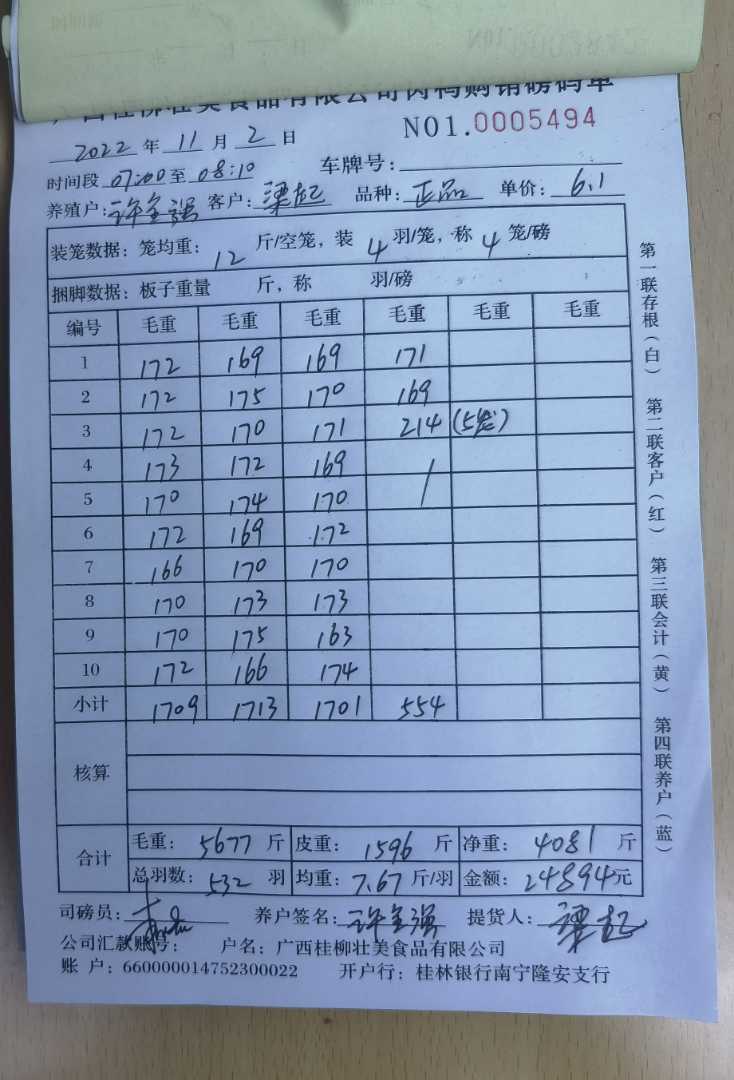 广西桂柳壮美食品有限公司肉鸭购销磅码单
2022 年 11 月 2 日 NO1.0005494
时间段 07:00 至 08:10 车牌号:
养殖户: 许金强 客户: 梁起 品种: 正品 单价: 6.1
装笼数据: 笼均重: 12 斤/空笼, 装 4 羽/笼, 称 4 笼/磅
捆脚数据: 板子重量 斤, 称 羽/磅
编号 毛重 毛重 毛重 毛重 毛重 毛重
1 172 169 169 171
2 172 175 170 169
3 172 170 171 214 (5笼)
4 173 172 169 /
5 170 174 170
6 172 169 172
7 166 170 170
8 170 173 173
9 170 175 163
10 172 166 174
小计 1709 1713 1701 554
核算
合计
毛重: 5677 斤 皮重: 1596 斤 净重: 4081 斤
总羽数: 532 羽 均重: 7.67 斤/羽 金额: 24894元
司磅员: 养户签名: 许金强 提货人: 梁起
公司汇款账号: 户名: 广西桂柳壮美食品有限公司
账 户: 660000014752300022 开户行: 桂林银行南宁隆安支行
第一联存根(白) 第二联客户(红) 第三联会计(黄) 第四联养户(蓝)